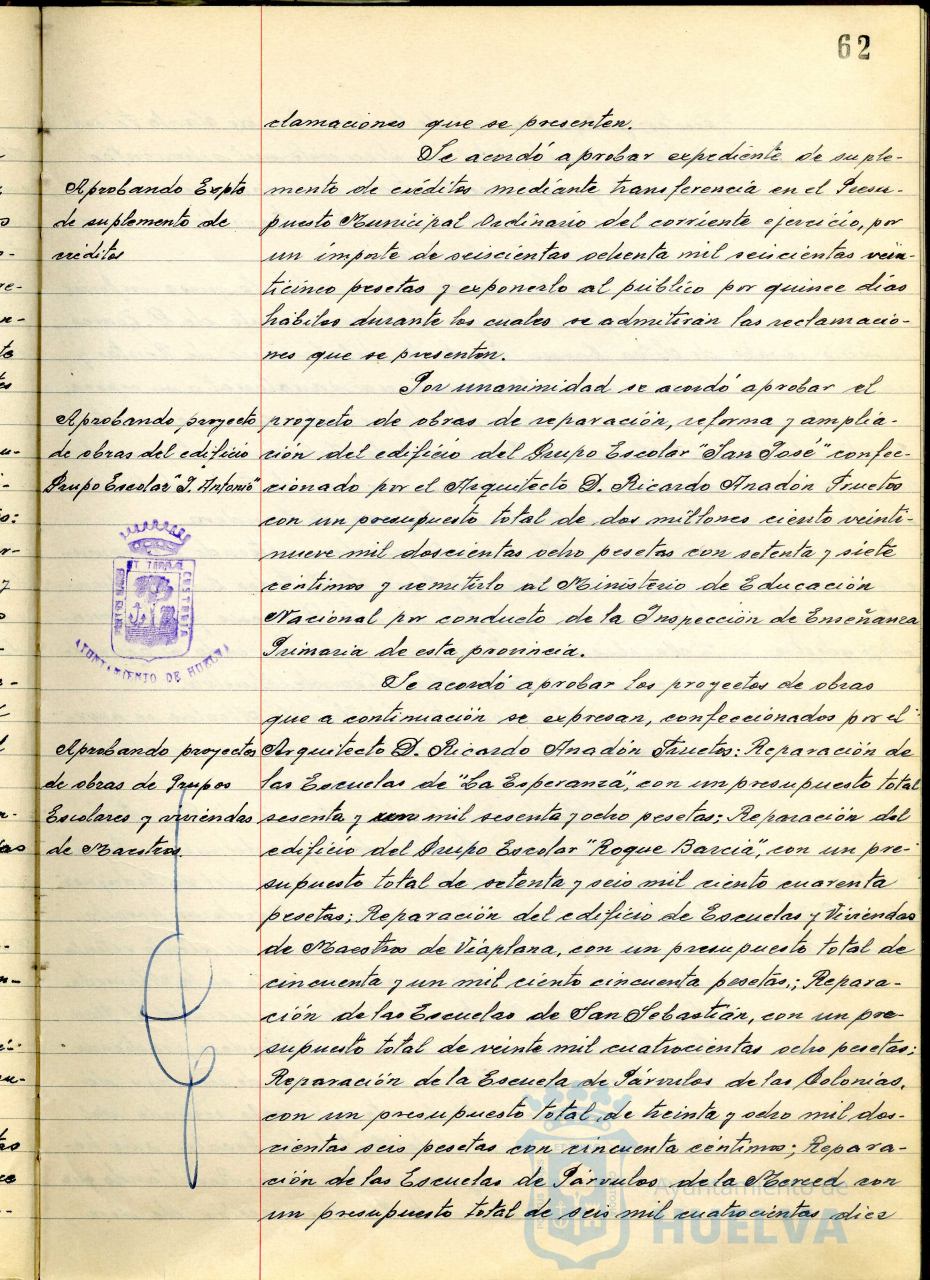 62
clamaciones que se presenten.
Se acordó aprobar expediente de suple-
Aprobando Expte
de suplemento de
créditos
mento de créditos mediante transferencia en el Presu-
puesto Municipal Ordinario del corriente ejercicio, por
un importe de seiscientas ochenta mil seiscientas vein-
ticinco pesetas y exponerlo al público por quince días
hábiles durante los cuales se admitirán las reclamacio-
nes que se presenten.
Por unanimidad se acordó aprobar el
Aprobando proyecto
de obras del edificio
Grupo Escolar "J. Antonio"
proyecto de obras de reparación, reforma y amplia-
ción del edificio del Grupo Escolar "San José" confec-
cionado por el Arquitecto D. Ricardo Anadón Fructos
con un presupuesto total de dos millones ciento veinti-
nueve mil doscientas ocho pesetas con setenta y siete
céntimos y remitirlo al Ministerio de Educación
Nacional por conducto de la Inspección de Enseñanza
Primaria de esta provincia.
AYUNTAMIENTO DE HUELVA
Se acordó aprobar los proyectos de obras
que a continuación se expresan, confeccionados por el
Aprobando proyectos
de obras de Grupos
Escolares y viviendas
de Maestros.
Arquitecto D. Ricardo Anadón Fructos: Reparación de
las Escuelas de "La Esperanza", con un presupuesto total
sesenta y un mil sesenta y ocho pesetas; Reparación del
edificio del Grupo Escolar "Roque Barcia", con un pre-
supuesto total de setenta y seis mil ciento cuarenta
pesetas; Reparación del edificio de Escuelas y Viviendas
de Maestros de Viaplana, con un presupuesto total de
cincuenta y un mil ciento cincuenta pesetas,; Repara-
ción de las Escuelas de San Sebastián, con un pre-
supuesto total de veinte mil cuatrocientas ocho pesetas;
Reparación de la Escuela de Párvulos de las Colonias,
con un presupuesto total de treinta y ocho mil dos-
cientas seis pesetas con cincuenta céntimos; Repara-
ción de las Escuelas de Párvulos de la Merced con
un presupuesto total de seis mil cuatrocientas diez
Ayuntamiento de
HUELVA